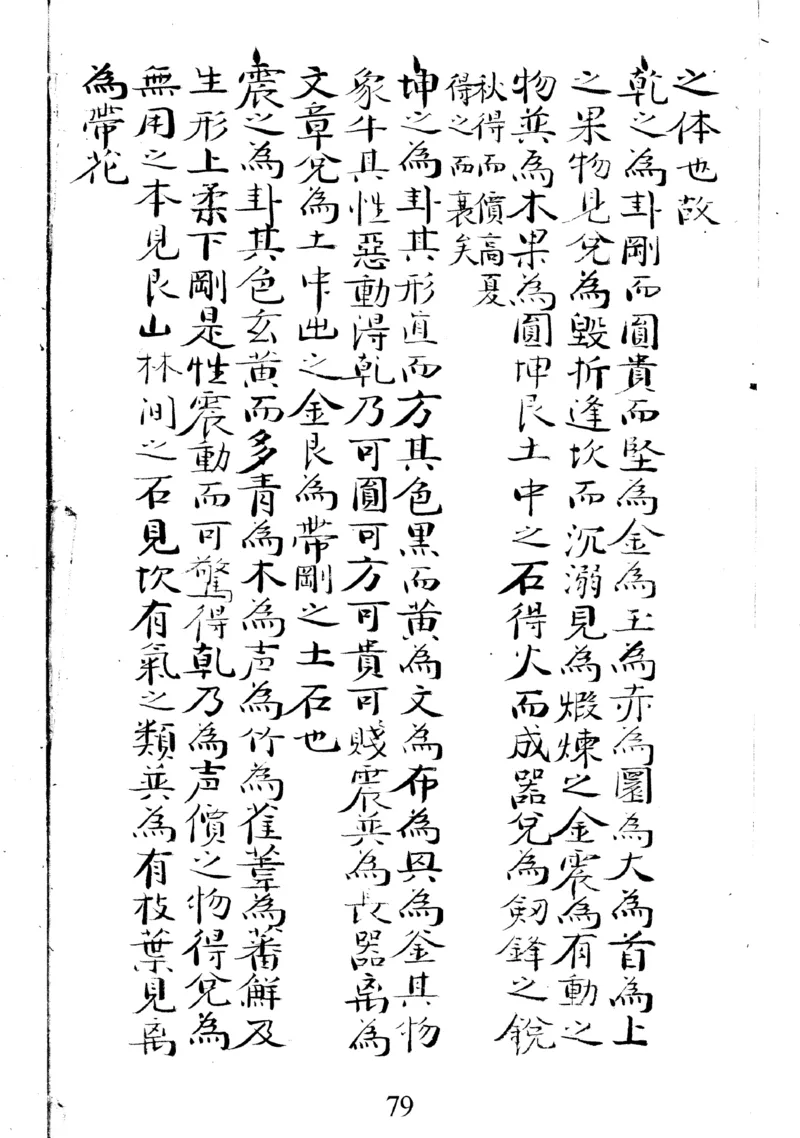 之体也故
乾之為卦剛而圓貴而堅為金為玉為赤為圜為大為首為上
之果物見兌為毀折逢坎而沉溺見為煅煉之金震為有動之
物巽為木果為圓坤艮土中之石得火而成器兌為劒鋒之銳
秋得而價高夏
得之而衰矣
坤之為卦其形直而方其色黑而黃為文為布為輿為釜其物
象牛其性惡動得乾乃可圓可方可貴可賤震巽為長器离為
文章兌為土中出之金艮為帶剛之土石也
震之為卦其色玄黃而多青為木為声為竹為萑葦為蕃鮮及
生形上柔下剛是性震動而可驚得乾乃為声價之物得兌為
無用之本見艮山林间之石見坎有氣之類巽為有枝葉見离
為帶花
79